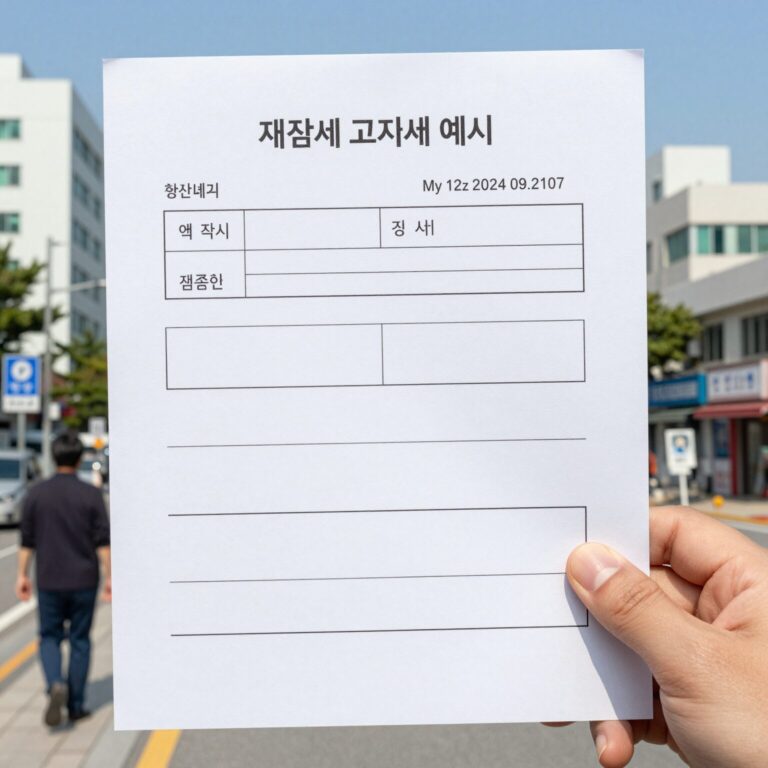 재잠세 고자새 예시
항산네긔 My 12z 2024 09.2107
액 작시 징 새
잼종한